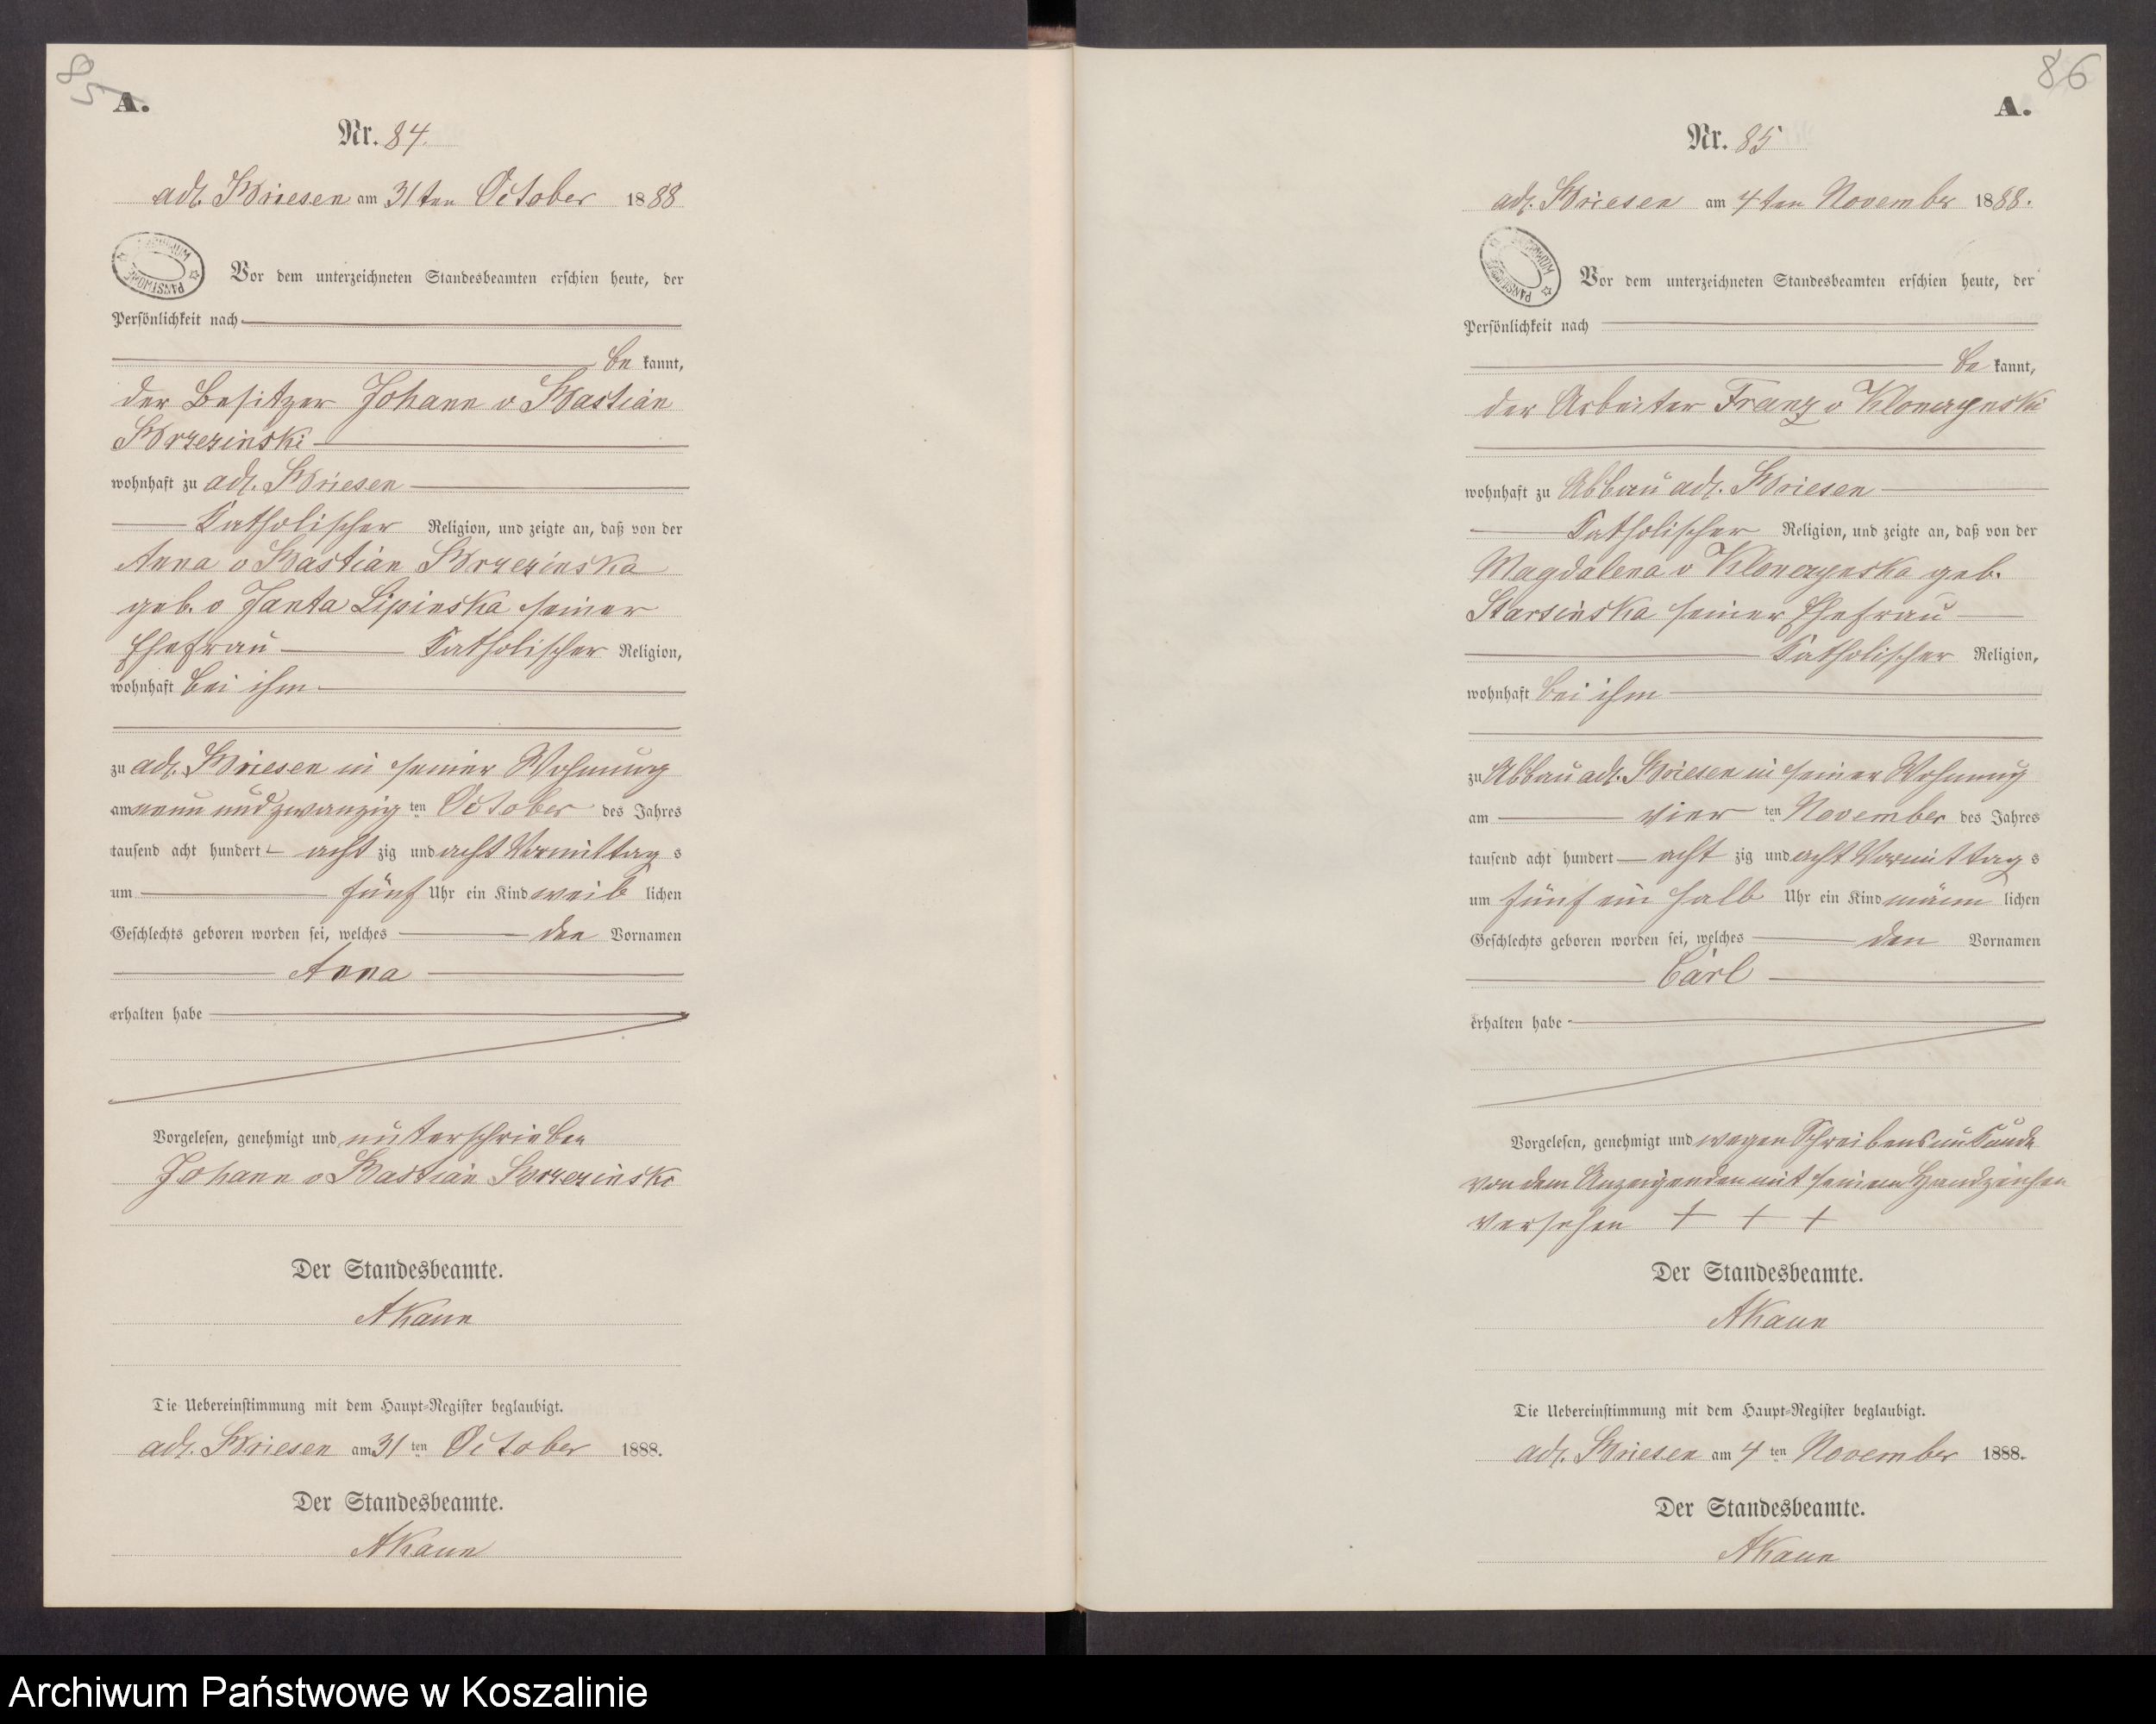 85
A.
Nr. 84.
adl. Briesen am 31ten October 1888
ARCHIWUM PAŃSTWOWE
Vor dem unterzeichneten Standesbeamten erschien heute, der
Persönlichkeit nach
be kannt,
der Besitzer Johann v Bastian
Brzezinski
wohnhaft zu adl. Briesen
katholischer Religion, und zeigte an, daß von der
Anna v Bastian Brzezinska
geb. v Janta Lipinska seiner
Ehefrau katholischer Religion,
wohnhaft bei ihm
zu adl. Briesen in seiner Wohnung
am neun und zwanzig ten October des Jahres
tausend acht hundert acht zig und acht Vormittag s
um fünf Uhr ein Kind weib lichen
Geschlechts geboren worden sei, welches den Vornamen
Anna
erhalten habe
Vorgelesen, genehmigt und unterschrieben
Johann v Bastian Brzezinski
Der Standesbeamte.
AKaun
Die Uebereinstimmung mit dem Haupt-Register beglaubigt.
adl. Briesen am 31 ten October 1888.
Der Standesbeamte.
AKaun
86
A.
Nr. 85
adl. Briesen am 4ten November 1888.
ARCHIWUM PAŃSTWOWE
Vor dem unterzeichneten Standesbeamten erschien heute, der
Persönlichkeit nach
be kannt,
der Arbeiter Franz v Klonczynski
wohnhaft zu Abbau adl. Briesen
katholischer Religion, und zeigte an, daß von der
Magdalena v Klonczynska geb.
Starsinska seiner Ehefrau
katholischer Religion,
wohnhaft bei ihm
zu Abbau adl. Briesen in seiner Wohnung
am vier ten November des Jahres
tausend acht hundert acht zig und acht Vormittag s
um fünf ein halb Uhr ein Kind männ lichen
Geschlechts geboren worden sei, welches den Vornamen
Carl
erhalten habe
Vorgelesen, genehmigt und wegen Schreibensunkunde
von dem Anzeigenden mit seinem Handzeichen
versehen + + +
Der Standesbeamte.
AKaun
Die Uebereinstimmung mit dem Haupt-Register beglaubigt.
adl. Briesen am 4 ten November 1888.
Der Standesbeamte.
AKaun
Archiwum Państwowe w Koszalinie